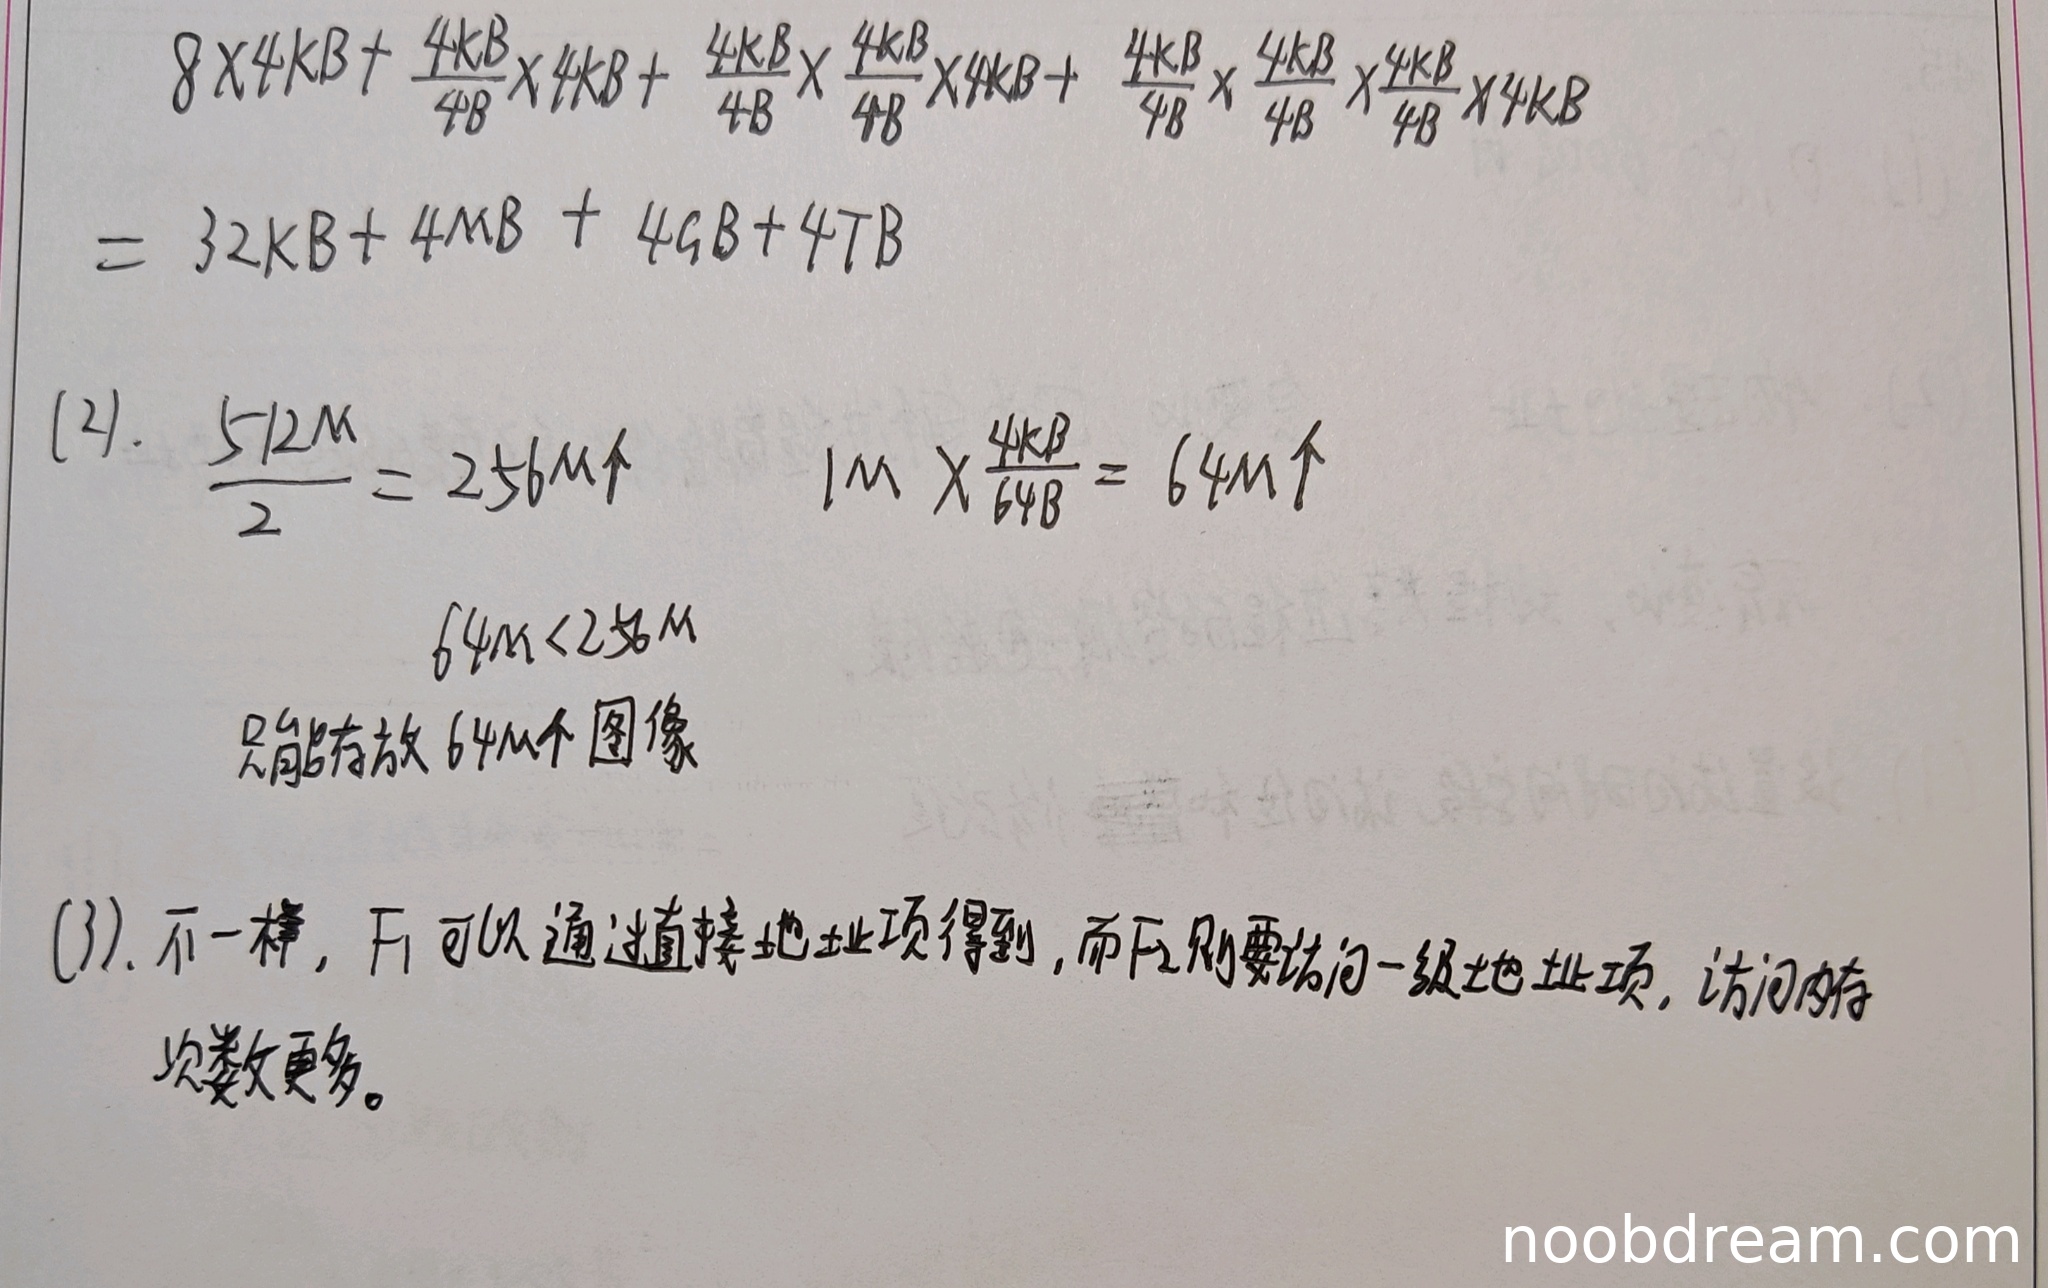 8×4KB+ 4KB/4B ×4KB+ 4KB/4B × 4KB/4B ×4KB+ 4KB/4B × 4KB/4B × 4KB/4B ×4KB
= 32KB+4MB + 4GB+4TB
(2). 512M/2 = 256M个 1M × 4KB/64B = 64M个
64M<256M
只能存放64M个图像
(3). 不一样, F1可以通过直接地址项得到, 而F2则要访问一级地址项, 访问内存
次数更多。
noobdream.com